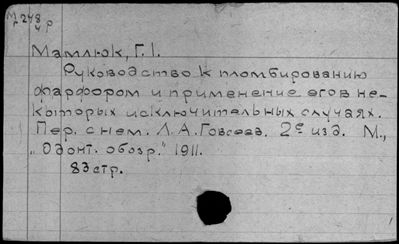 М 248
4 р
Мамлюк, Г. І.
Руководство к пломбированию
фарфором и применение его в не-
которых исключительных случаях.
Пер. с нем. Л. А. Говсеев. 2е изд. М.,
„Одонт. обозр." 1911.
83 стр.